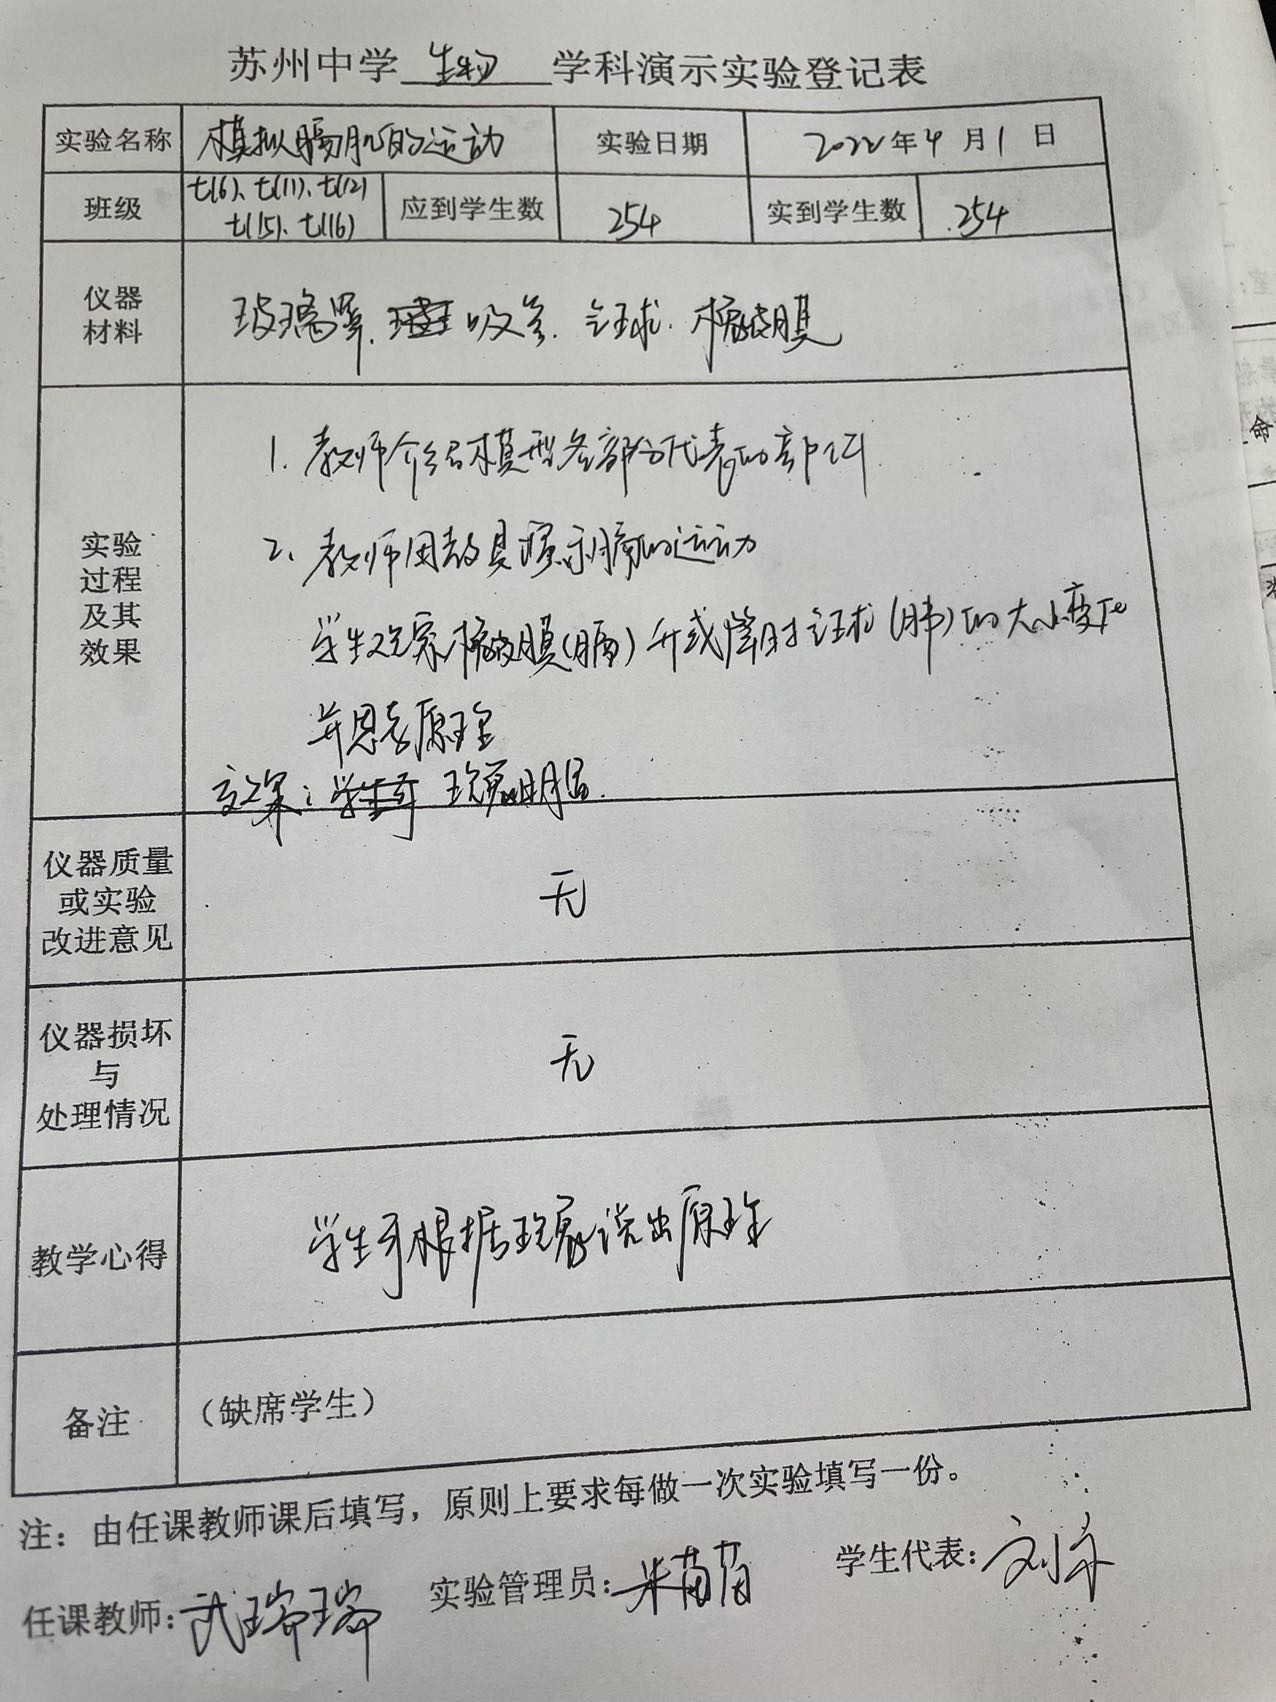 苏州中学 生物 学科演示实验登记表
实验名称 模拟膈肌的运动 实验日期 2022年4月1日
班级 七(6)、七(11)、七(12) 应到学生数 254 实到学生数 254
七(15)、七(16)
仪器
材料
玻璃罩、吸管、气球、橡皮膜
实验
过程
及其
效果
1. 教师介绍模型各部分代表的部位
2、教师用教具演示膈的运动
学生观察橡皮膜(膈)升或降时气球(肺)的大小变化
并思考原理
效果: 现象明显.
仪器质量
或实验
改进意见
无
仪器损坏
与
处理情况
无
教学心得 学生可根据现象说出原理
备注 (缺席学生)
注：由任课教师课后填写，原则上要求每做一次实验填写一份。
任课教师: 武瑞瑞 实验管理员: 朱苗苗 学生代表: 刘
命